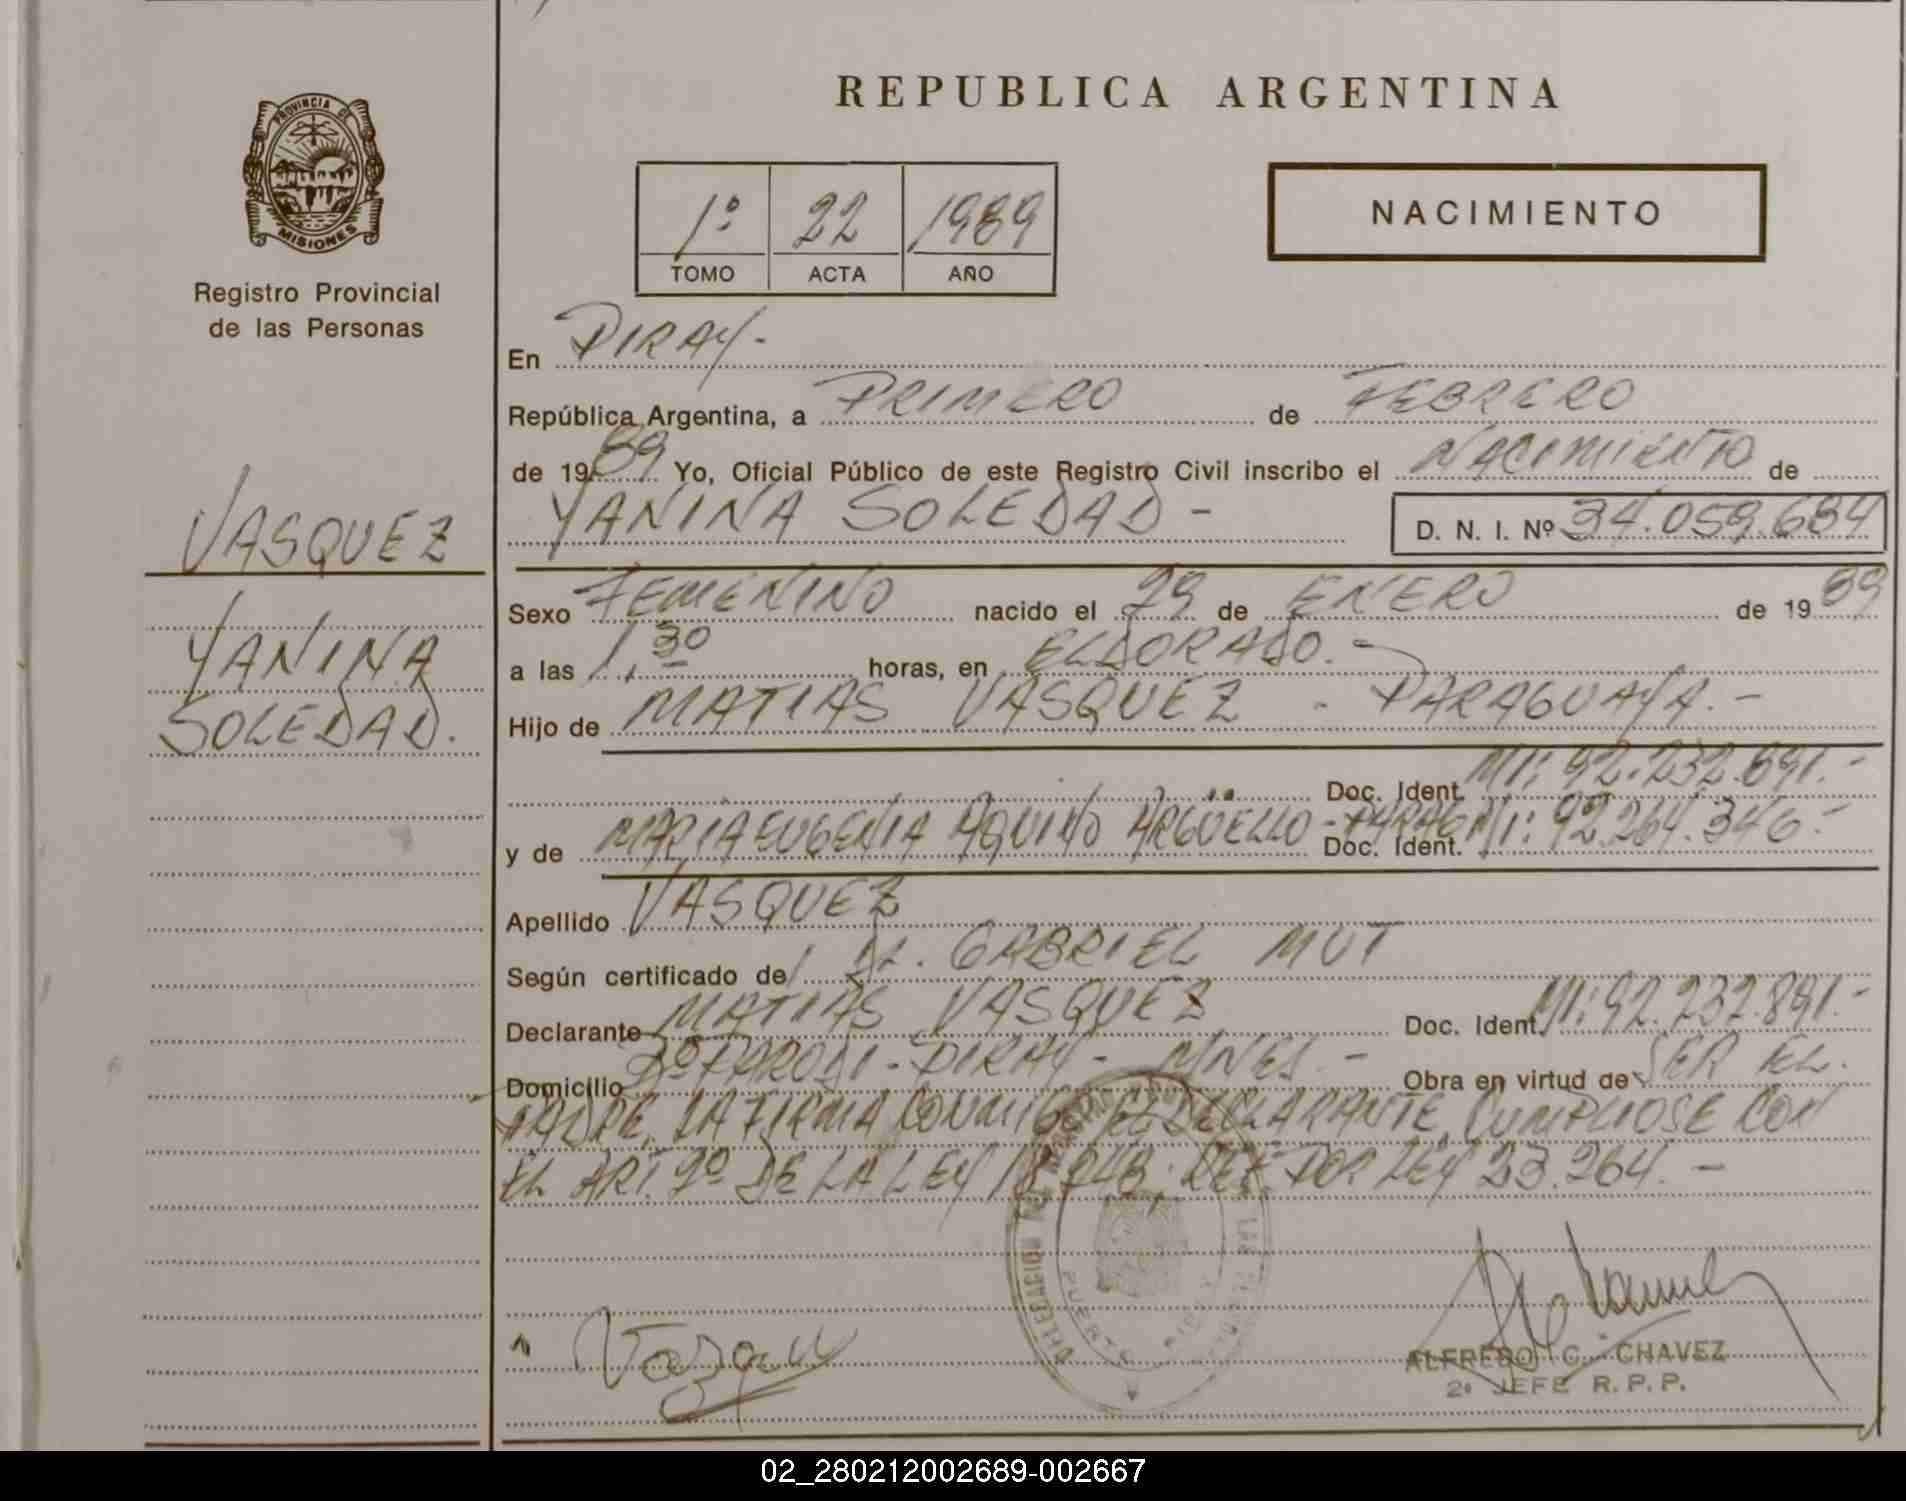 PROVINCIA DE
MISIONES
Registro Provincial
de las Personas
VASQUEZ
YANINA
SOLEDAD.
REPUBLICA ARGENTINA
1º 22 1989
TOMO ACTA AÑO
NACIMIENTO
En PIRAY-
República Argentina, a PRIMERO de FEBRERO
de 1989 Yo, Oficial Público de este Registro Civil inscribo el NACIMIENTO de
YANINA SOLEDAD - D. N. I. Nº 34.059.684
Sexo FEMENINO nacido el 29 de ENERO de 1989
a las 1,30 horas, en ELDORADO.-
Hijo de MATIAS VASQUEZ - PARAGUAYA.-
Doc. Ident. MI: 92.232.891.-
y de MARIA EUGENIA AQUINO ARGÜELLO - PARAG Doc. Ident. MI: 92.264.346.-
Apellido VASQUEZ
Según certificado de GABRIEL MUT
Declarante MATIAS VASQUEZ Doc. Ident. MI: 92.232.891.-
Domicilio Bº PARODI - PIRAY - MNES. - Obra en virtud de SER EL
PADRE. LA FIRMA CONMIGO EL DECLARANTE, CUMPLIOSE CON
EL ART. 2º DE LA LEY 18.248. REF. POR LEY 23.264. -
DELEGACION
PUERTO PIRAY
Vazquez
ALFREDO C. CHAVEZ
2º JEFE R.P.P.
02_280212002689-002667